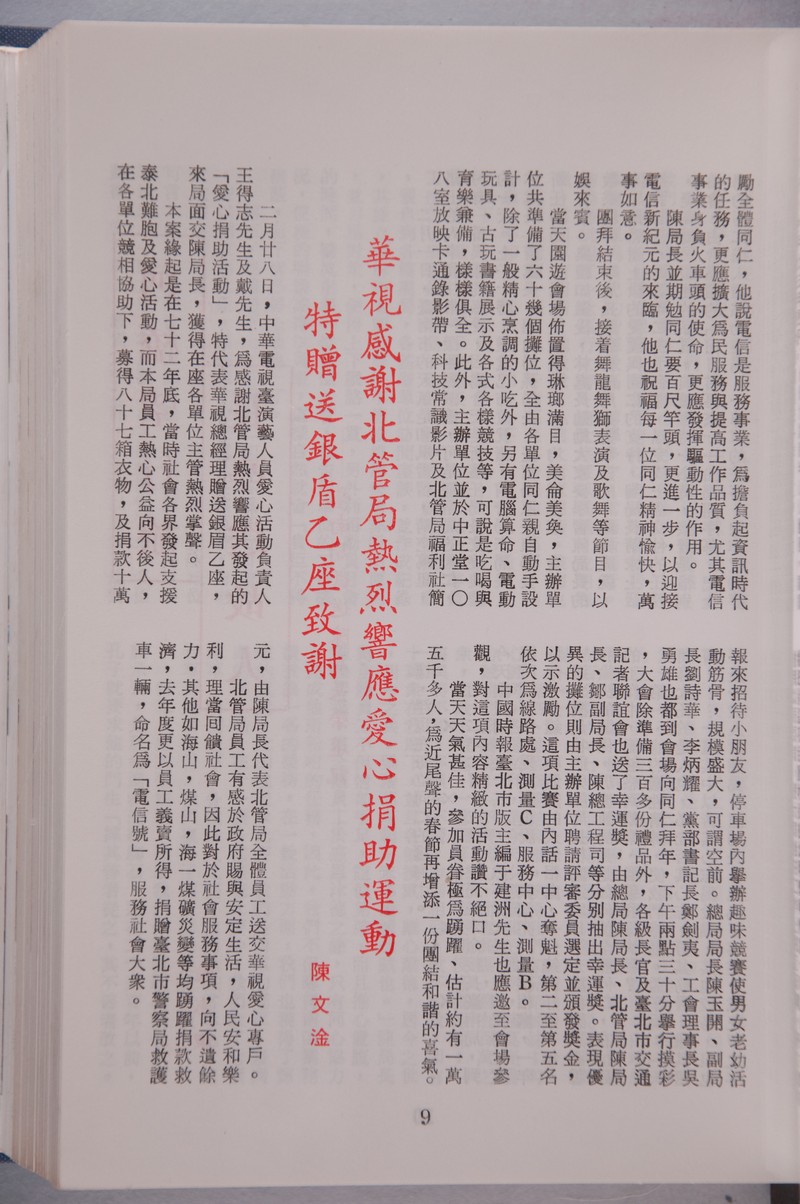 勵全體同仁，他說電信是服務事業，爲擔負起資訊時代
的任務，更應擴大爲民服務與提高工作品質，尤其電信
事業身負火車頭的使命，更應發揮驅動性的作用。
陳局長並期勉同仁要百尺竿頭，更進一步，以迎接
電信新紀元的來臨，他也祝福每一位同仁精神愉快，萬
事如意。
團拜結束後，接着舞龍舞獅表演及歌舞等節目，以
娛來賓。
當天園遊會場佈置得琳瑯滿目，美侖美奐，主辦單
位共準備了六十幾個攤位，全由各單位同仁親自動手設
計，除了一般精心烹調的小吃外，另有電腦算命、電動
玩具、古玩書籍展示及各式各樣競技等，可說是吃喝與
育樂兼備，樣樣俱全。此外，主辦單位並於中正堂一〇
八室放映卡通錄影帶、科技常識影片及北管局福利社簡
報來招待小朋友，停車場內擧辦趣味競賽使男女老幼活
動筋骨，規模盛大，可謂空前。總局局長陳玉開、副局
長劉詩華、李炳耀、黨部書記長鄭劍夷、工會理事長吳
勇雄也都到會場向同仁拜年，下午兩點三十分擧行摸彩
，大會除準備三百多份禮品外，各級長官及臺北市交通
記者聯誼會也送了幸運獎，由總局陳局長、北管局陳局
長、鄒副局長、陳總工程司等分別抽出幸運獎。表現優
異的攤位則由主辦單位聘請評審委員選定並頒發獎金，
以示激勵。這項比賽由內話一中心奪魁，第二至第五名
依次爲線路處、測量C、服務中心、測量B。
中國時報臺北市版主編于建洲先生也應邀至會場參
觀，對這項內容精緻的活動讚不絕口。
當天天氣甚佳，參加員眷極爲踴躍、估計約有一萬
五千多人，爲近尾聲的春節再增添一份團結和諧的喜氣。
華視感謝北管局熱烈響應愛心捐助運動
特贈送銀盾乙座致謝
陳文淦
二月廿八日，中華電視臺演藝人員愛心活動負責人
王得志先生及戴先生，爲感謝北管局熱烈響應其發起的
「愛心捐助活動」，特代表華視總經理贈送銀盾乙座，
來局面交陳局長，獲得在座各單位主管熱烈掌聲。
本案緣起是在七十二年底，當時社會各界發起支援
泰北難胞及愛心活動，而本局員工熱心公益向不後人，
在各單位競相協助下，募得八十七箱衣物，及捐款十萬
元，由陳局長代表北管局全體員工送交華視愛心專戶。
北管局員工有感於政府賜與安定生活，人民安和樂
利，理當回饋社會，因此對於社會服務事項，向不遺餘
力。其他如海山，煤山，海一煤礦災變等均踴躍捐款救
濟，去年度更以員工義賣所得，捐贈臺北市警察局救護
車一輛，命名爲「電信號」，服務社會大衆。
9